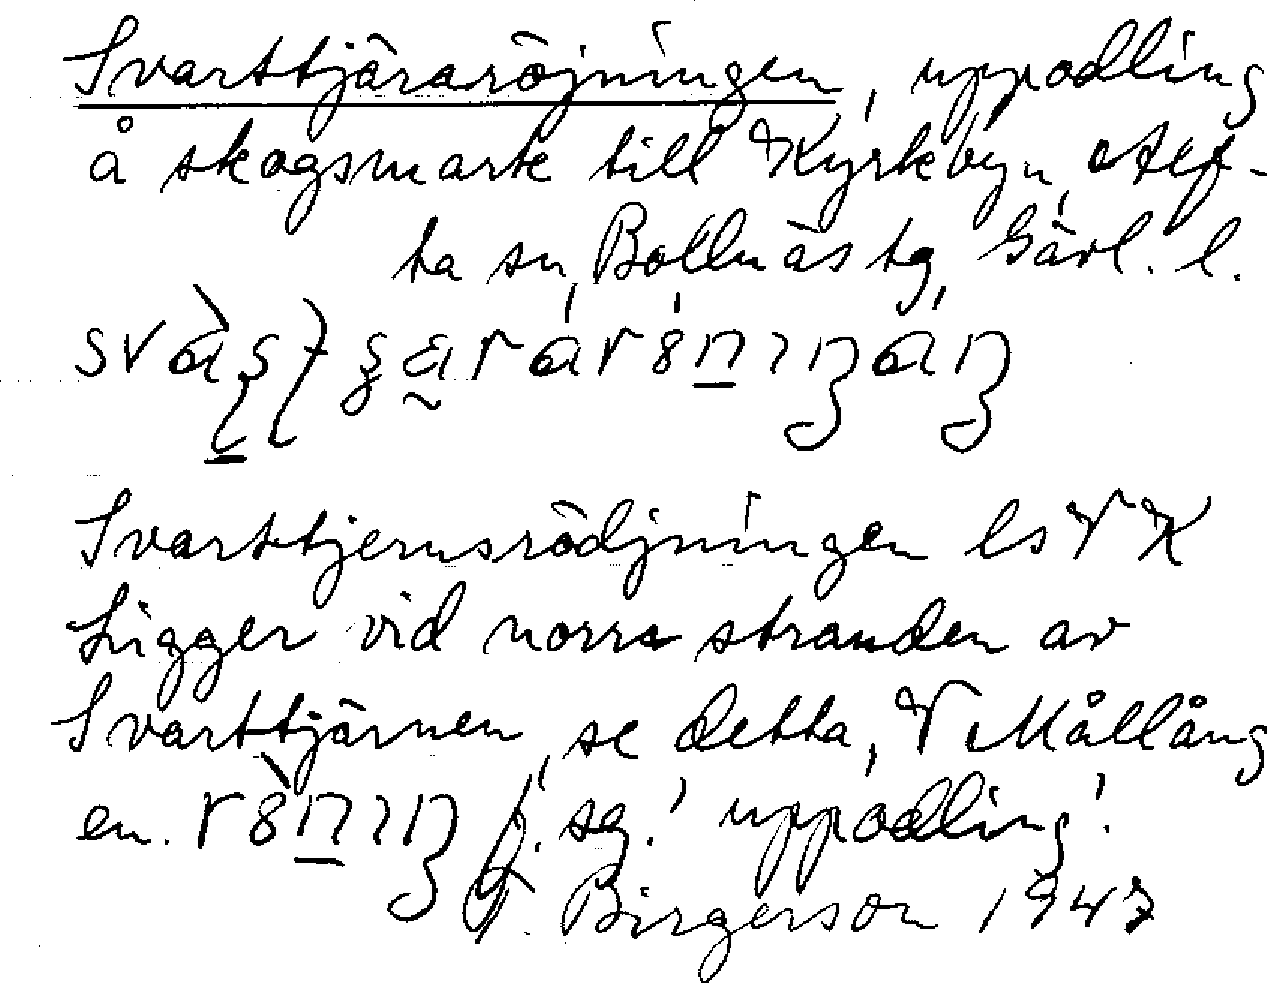 Svarttjäraröjningen, uppodling
å skogsmark till Kyrkbyn, Alf-
ta sn, Bollnäs tg, Gävl. l.
Svarttjernsrödjningen ls V K
Ligger vid norra stranden av
Svarttjärnen, se detta, V Mållång
en. f. sg. 'uppodling'.
Birgerson 1947